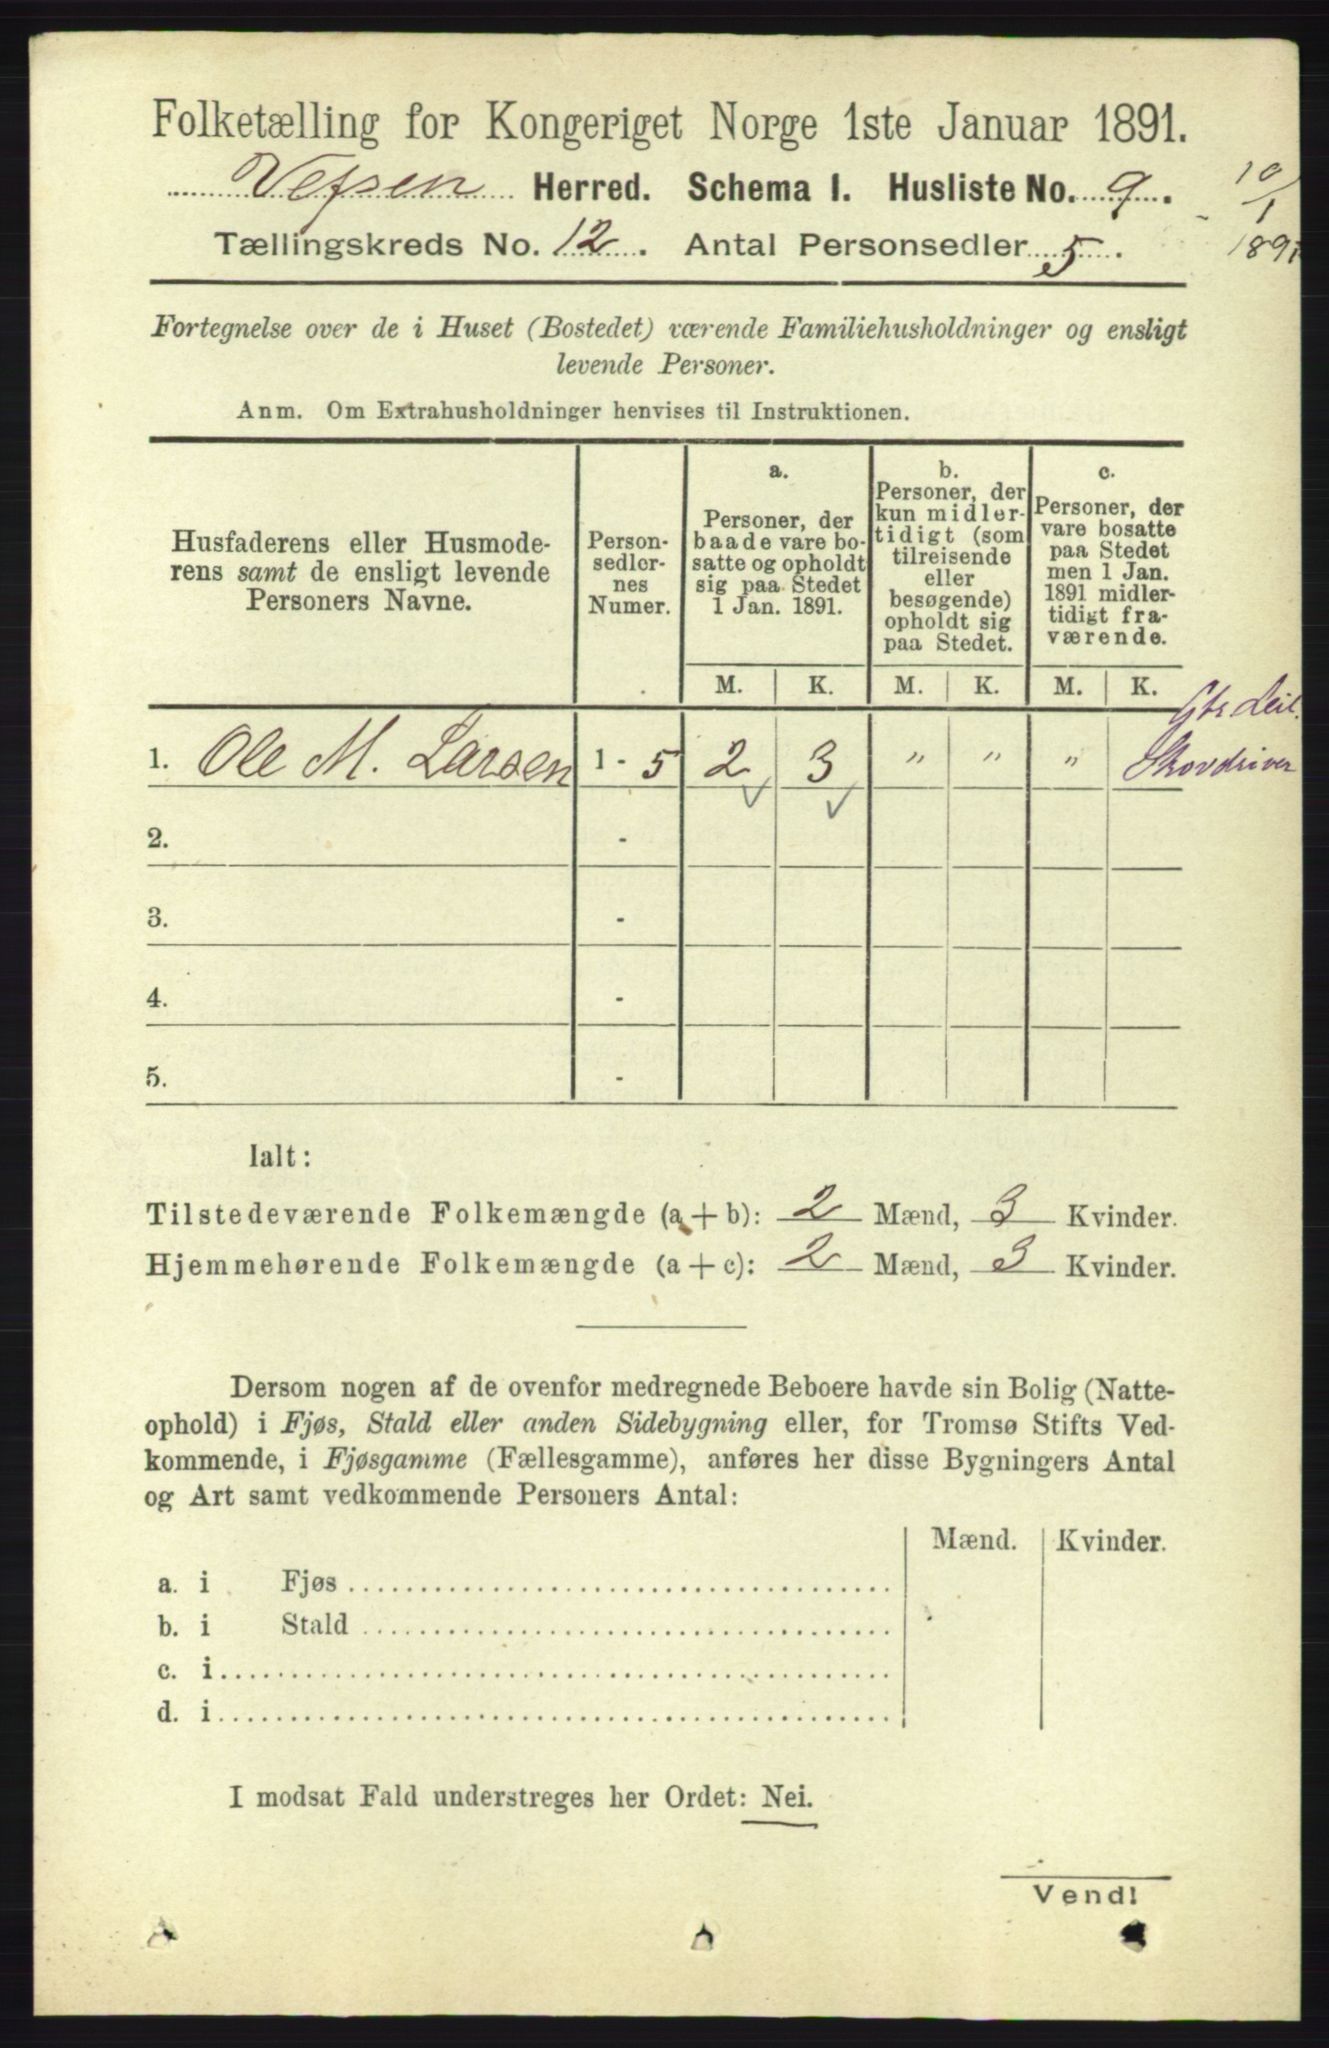 Folketælling for Kongeriget Norge 1ste Januar 1891.
Vefsen Herred. Schema 1. Husliste No. 9.
10/1 1891
Tællingskreds No. 12. Antal Personsedler 5.
Fortegnelse over de i Huset (Bostedet) værende Familiehusholdninger og ensligt
levende Personer.
Anm. Om Extrahusholdninger henvises til Instruktionen.
Husfaderens eller Husmode-
rens samt de ensligt levende
Personers Navne.
Person-
sedler-
nes
Numer.
a.
Personer, der
baade vare bo-
satte og opholdt
sig paa Stedet
1 Jan. 1891.
b.
Personer, der
kun midler-
tidigt (som
tilreisende
eller
besøgende)
opholdt sig
paa Stedet.
c.
Personer, der
vare bosatte
paa Stedet
men 1 Jan.
1891 midler-
tidigt fra-
værende.
M. K. M. K. M. K.
Gbr Leil.
1. Ole M. Larsen 1 - 5 2 3 " " " Skovdriver
2. -
3. -
4. -
5. -
Ialt:
Tilstedeværende Folkemængde (a + b): 2 Mænd, 3 Kvinder.
Hjemmehørende Folkemængde (a + c): 2 Mænd, 3 Kvinder.
Dersom nogen af de ovenfor medregnede Beboere havde sin Bolig (Natte-
ophold) i Fjøs, Stald eller anden Sidebygning eller, for Tromsø Stifts Ved-
kommende, i Fjøsgamme (Fællesgamme), anføres her disse Bygningers Antal
og Art samt vedkommende Personers Antal:
Mænd. Kvinder.
a. i Fjøs
b. i Stald
c. i
d. i
I modsat Fald understreges her Ordet: Nei.
Vend!